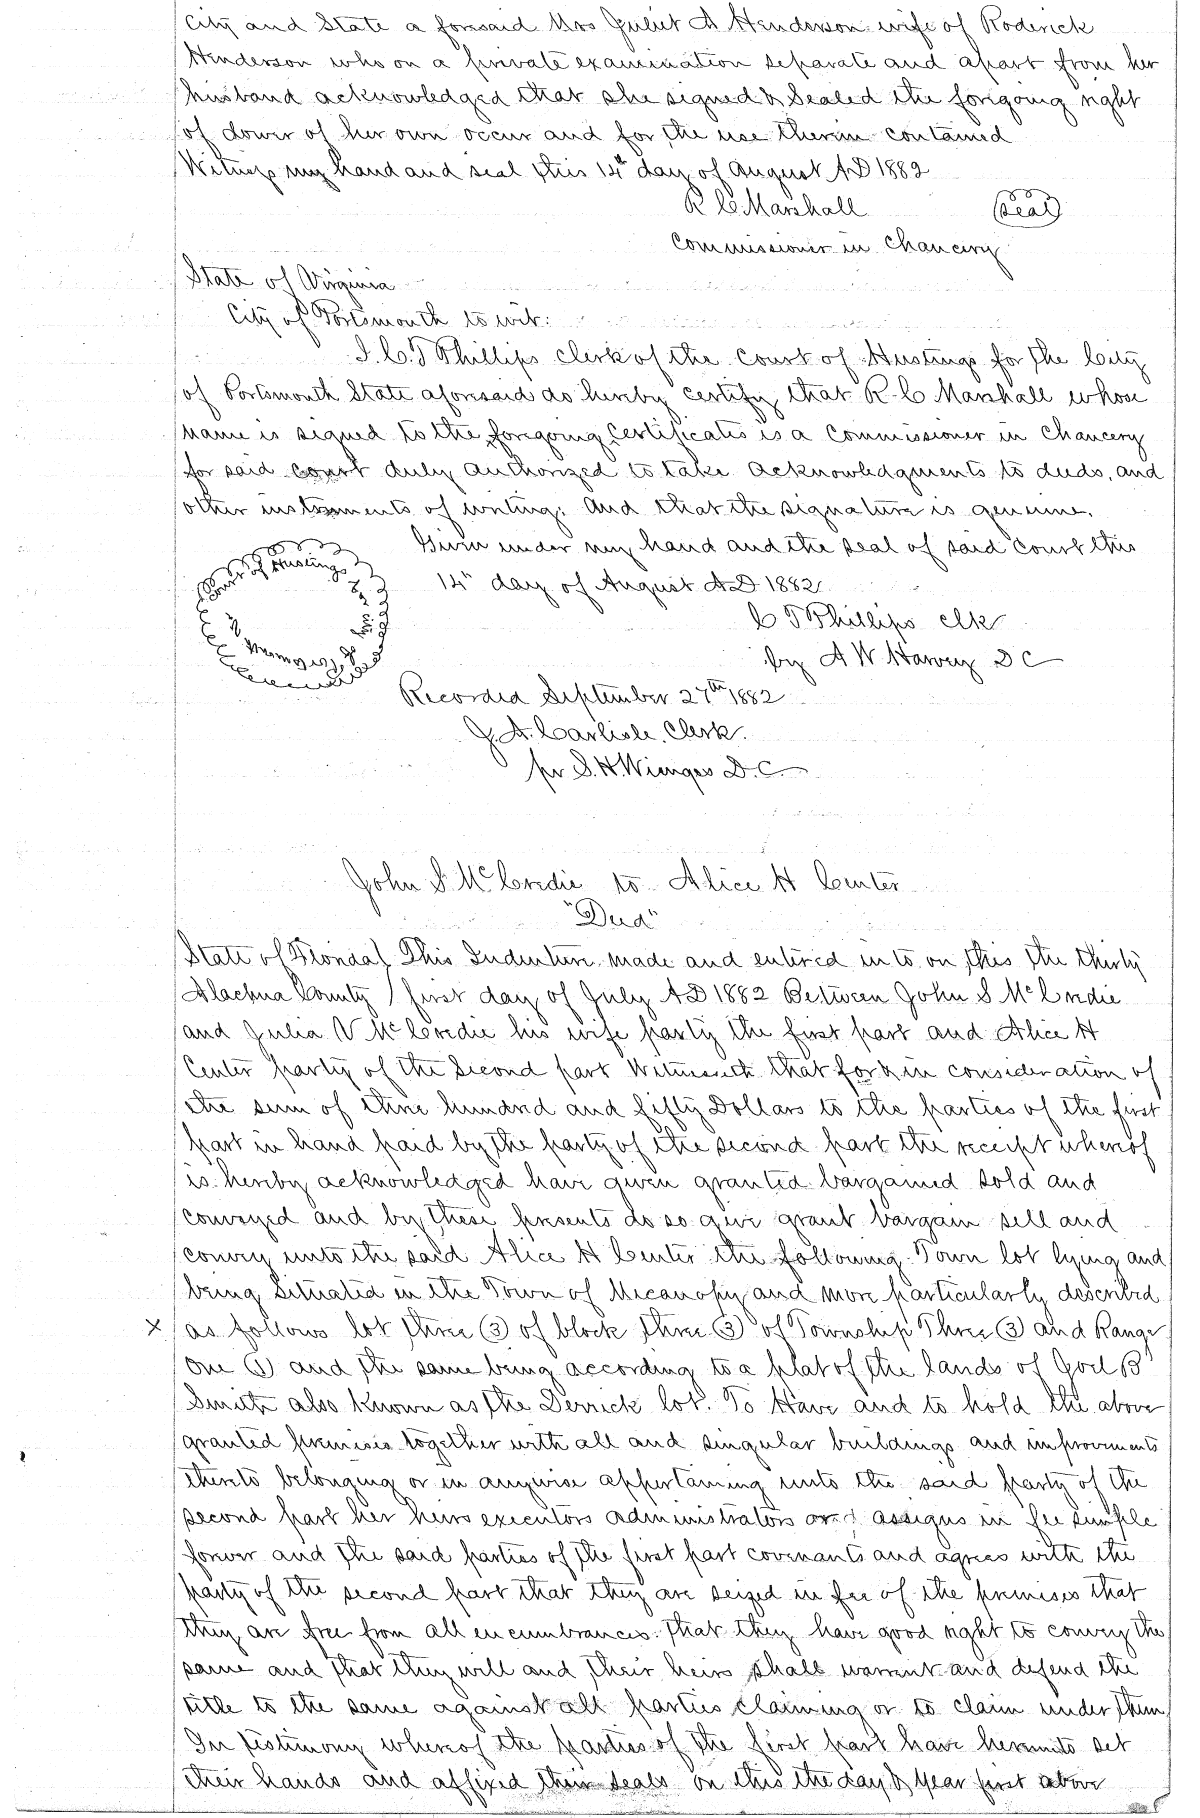 City and State a foresaid Mrs Juliet A Henderson wife of Roderick
Henderson who on a private examination separate and apart from her
husband acknowledged that she signed & Sealed the foregoing right
of dower of her own occur and for the use therein contained
Witness my hand and seal this 14th day of August AD 1882
R C Marshall (Seal)
Commissioner in Chancery
State of Virginia
City of Portsmouth to wit:
I. C. T Phillips Clerk of the Court of Hustings for the City
of Portsmouth State aforesaid do hereby certify that R. C Marshall whose
name is signed to the foregoing Certificates is a Commissioner in Chancery
for said court duly authorized to take acknowledgments to deeds, and
other instruments of writing; and that the signature is genuine.
Given under my hand and the seal of said court this
14th day of August AD 1882
Court of Hustings
C T Phillips Clk
by A W Harvey D C
Recorded September 27th 1882
J. A. Carlisle, Clerk.
pr S. H. Wienges D. C.
John S. McCredie to Alice H Center
"Deed"
State of Florida } This Indenture made and entered into on this the thirty
Alachua County } first day of July AD 1882 Between John S McCredie
and Julia V McCredie his wife party the first part and Alice H
Center party of the Second part Witnesseth that for & in consideration of
the sum of three hundred and fifty Dollars to the parties of the first
part in hand paid by the party of the second part the receipt whereof
is hereby acknowledged have given granted bargained sold and
conveyed and by these presents do so give grant bargain sell and
convey unto the said Alice H Center the following Town lot lying and
being situated in the Town of Micanopy and more particularly described
x as follows lot three (3) of block three (3) of Township Three (3) and Range
One (1) and the same being according to a plat of the lands of Joel B
Smith also known as the Derrick lot. To Have and to hold the above
granted premises together with all and singular buildings and improvements
thereto belonging or in anywise appertaining unto the said party of the
second part her heirs executors administrators and assigns in fee simple
forever and the said parties of the first part covenants and agrees with the
party of the second part that they are seized in fee of the premises that
they are free from all encumbrances that they have good right to convey the
same and that they will and their heirs shall warrent and defend the
title to the same against all parties claiming or to claim under them
In testimony whereof the parties of the first part have hereunto set
their hands and affixed their seals on this the day & year first above